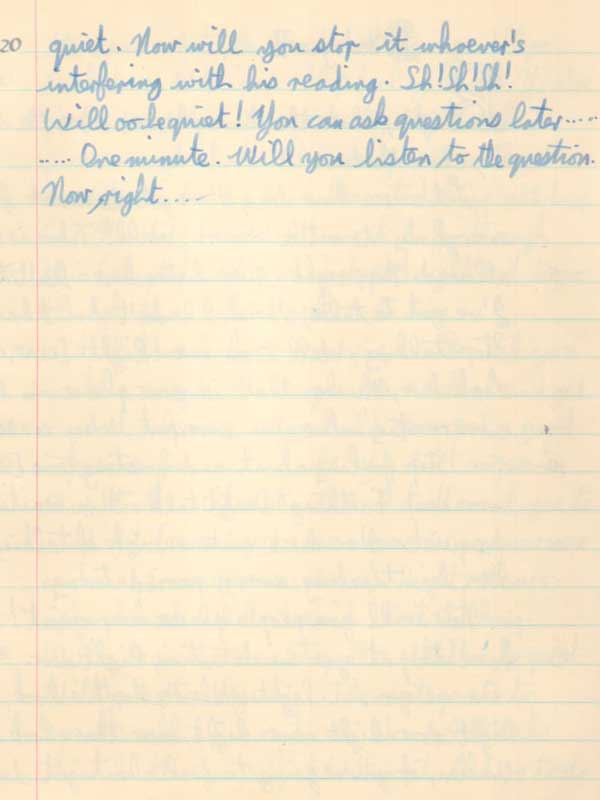 20 quiet. Now will you stop it whoever's
interfering with his reading. Sh! Sh! Sh!
Will oo be quiet! You can ask questions later.....
..... One minute. Will you listen to the question.
Now, right....